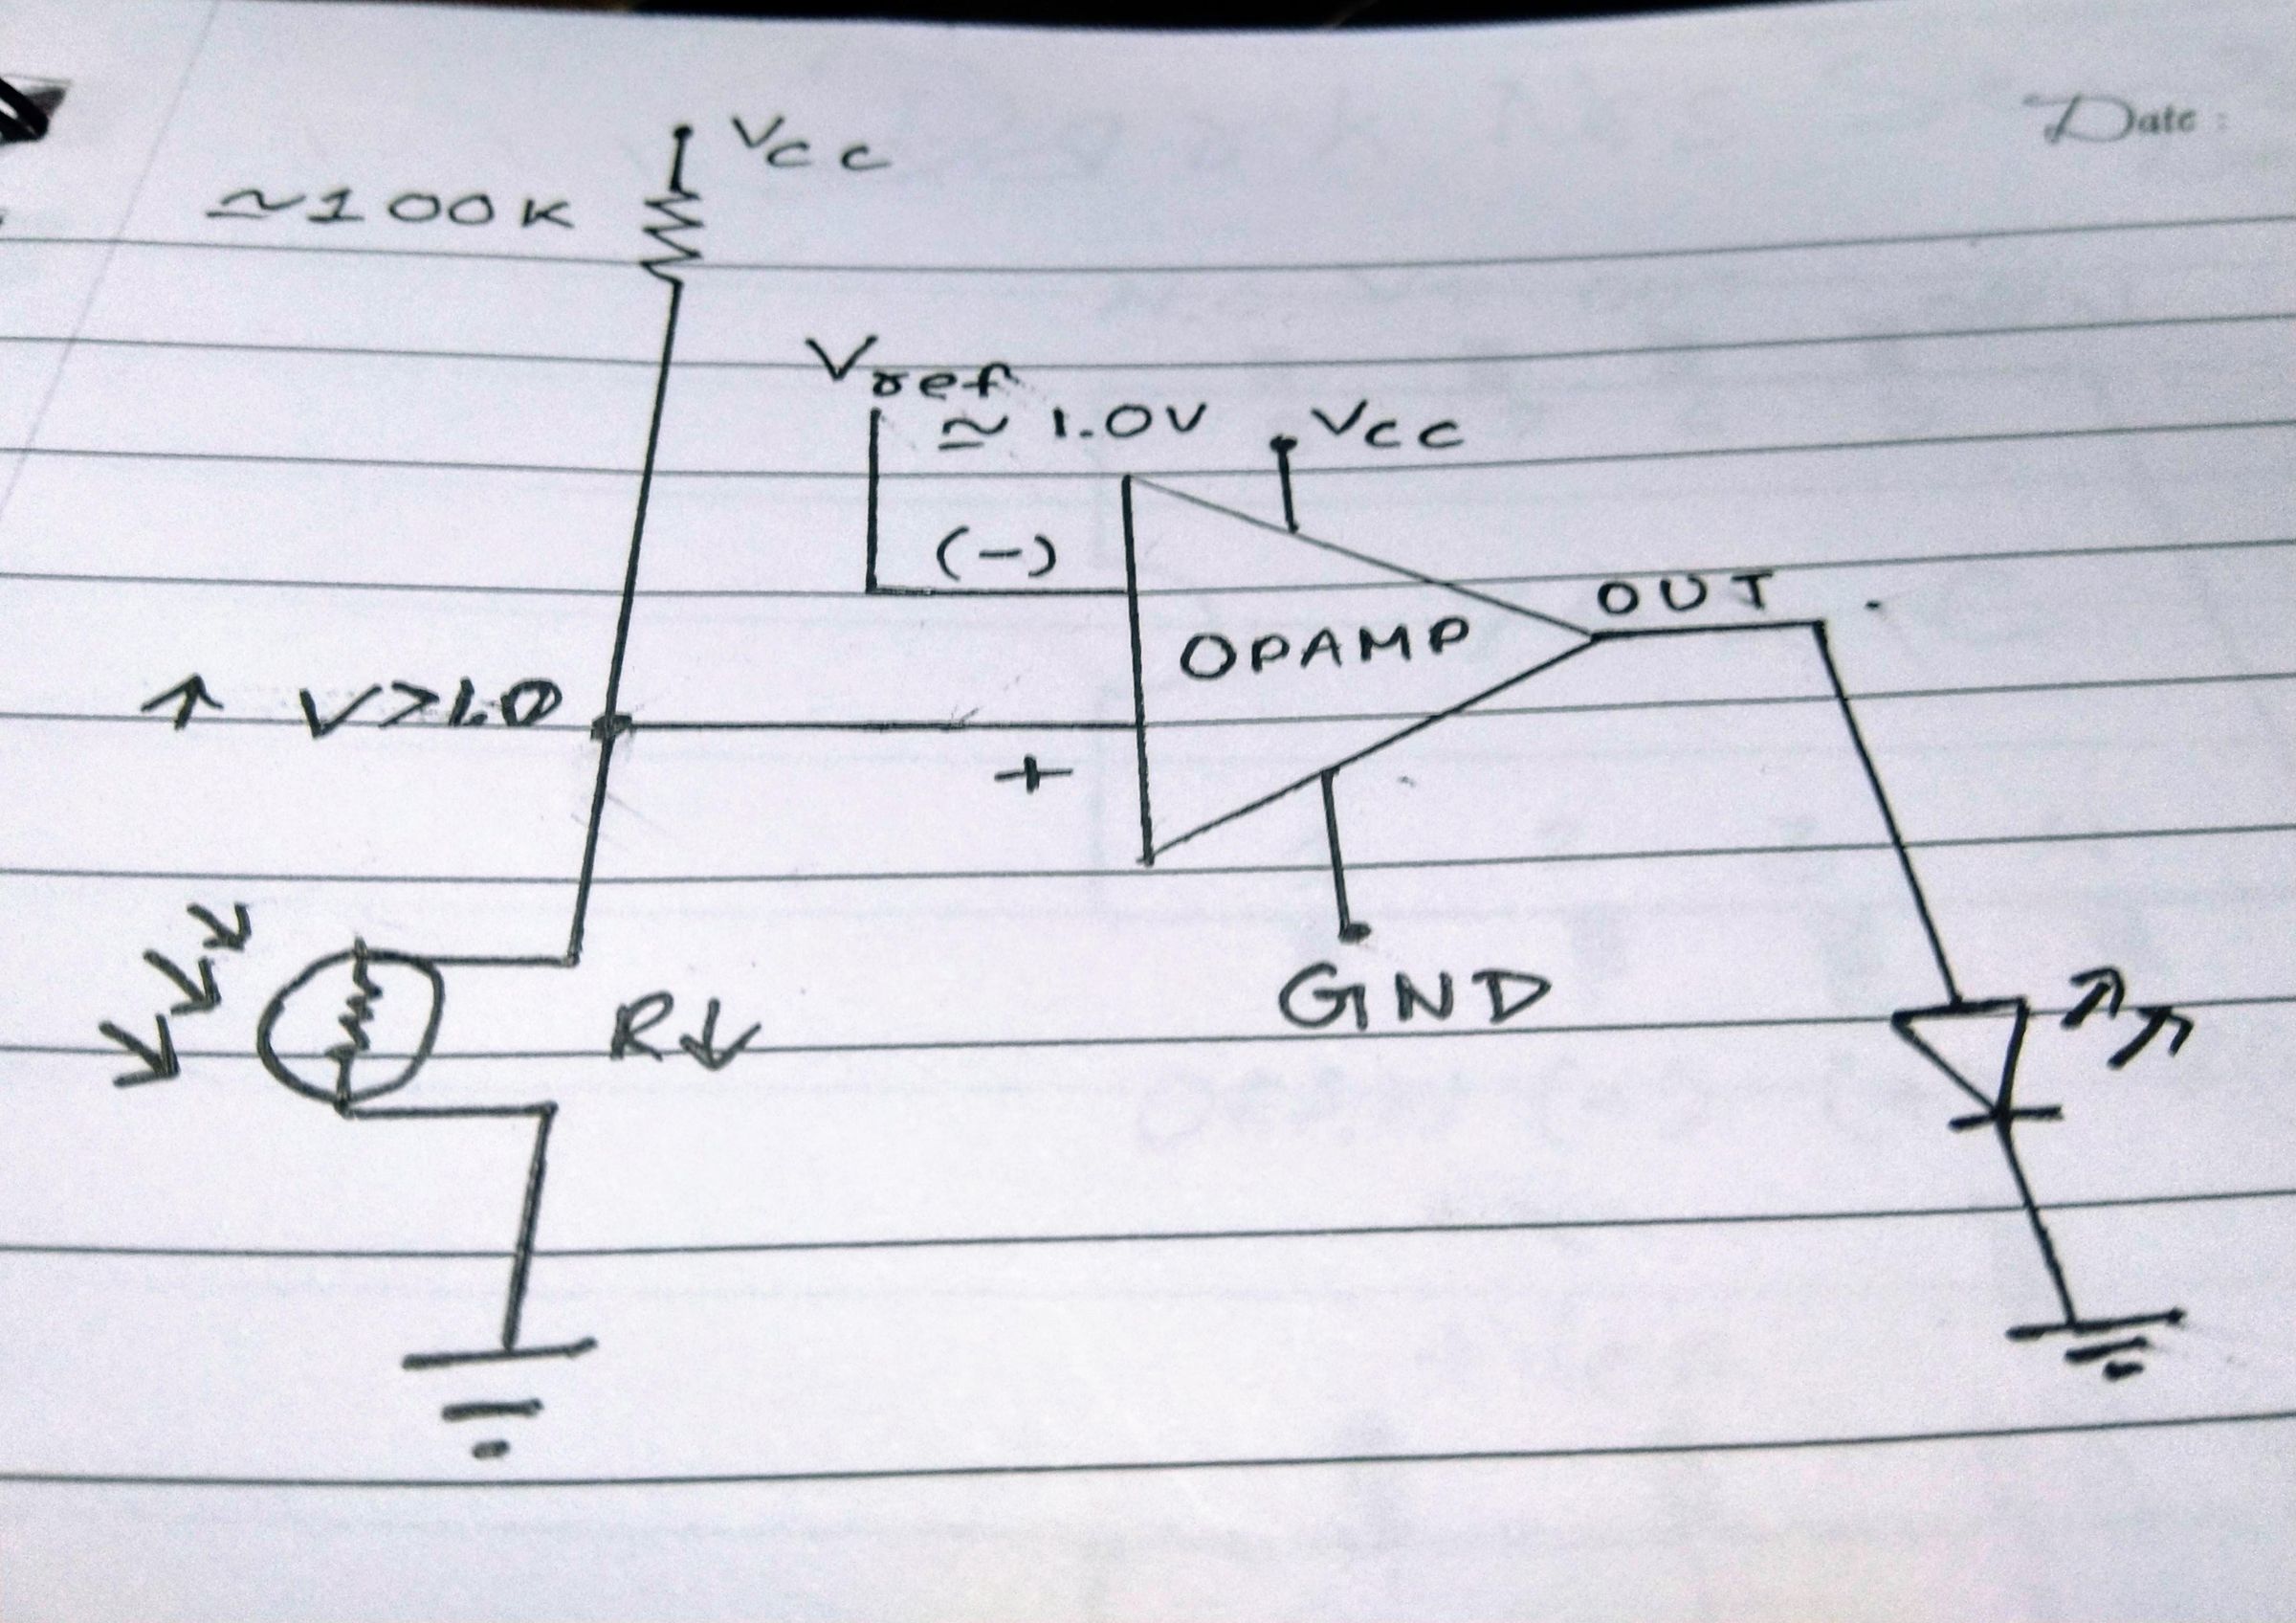 Date :
Vcc
≃100K
Vref
≃ 1.0V
Vcc
(-)
OUT
OPAMP
↑ V>1.0
+
GND
R↓